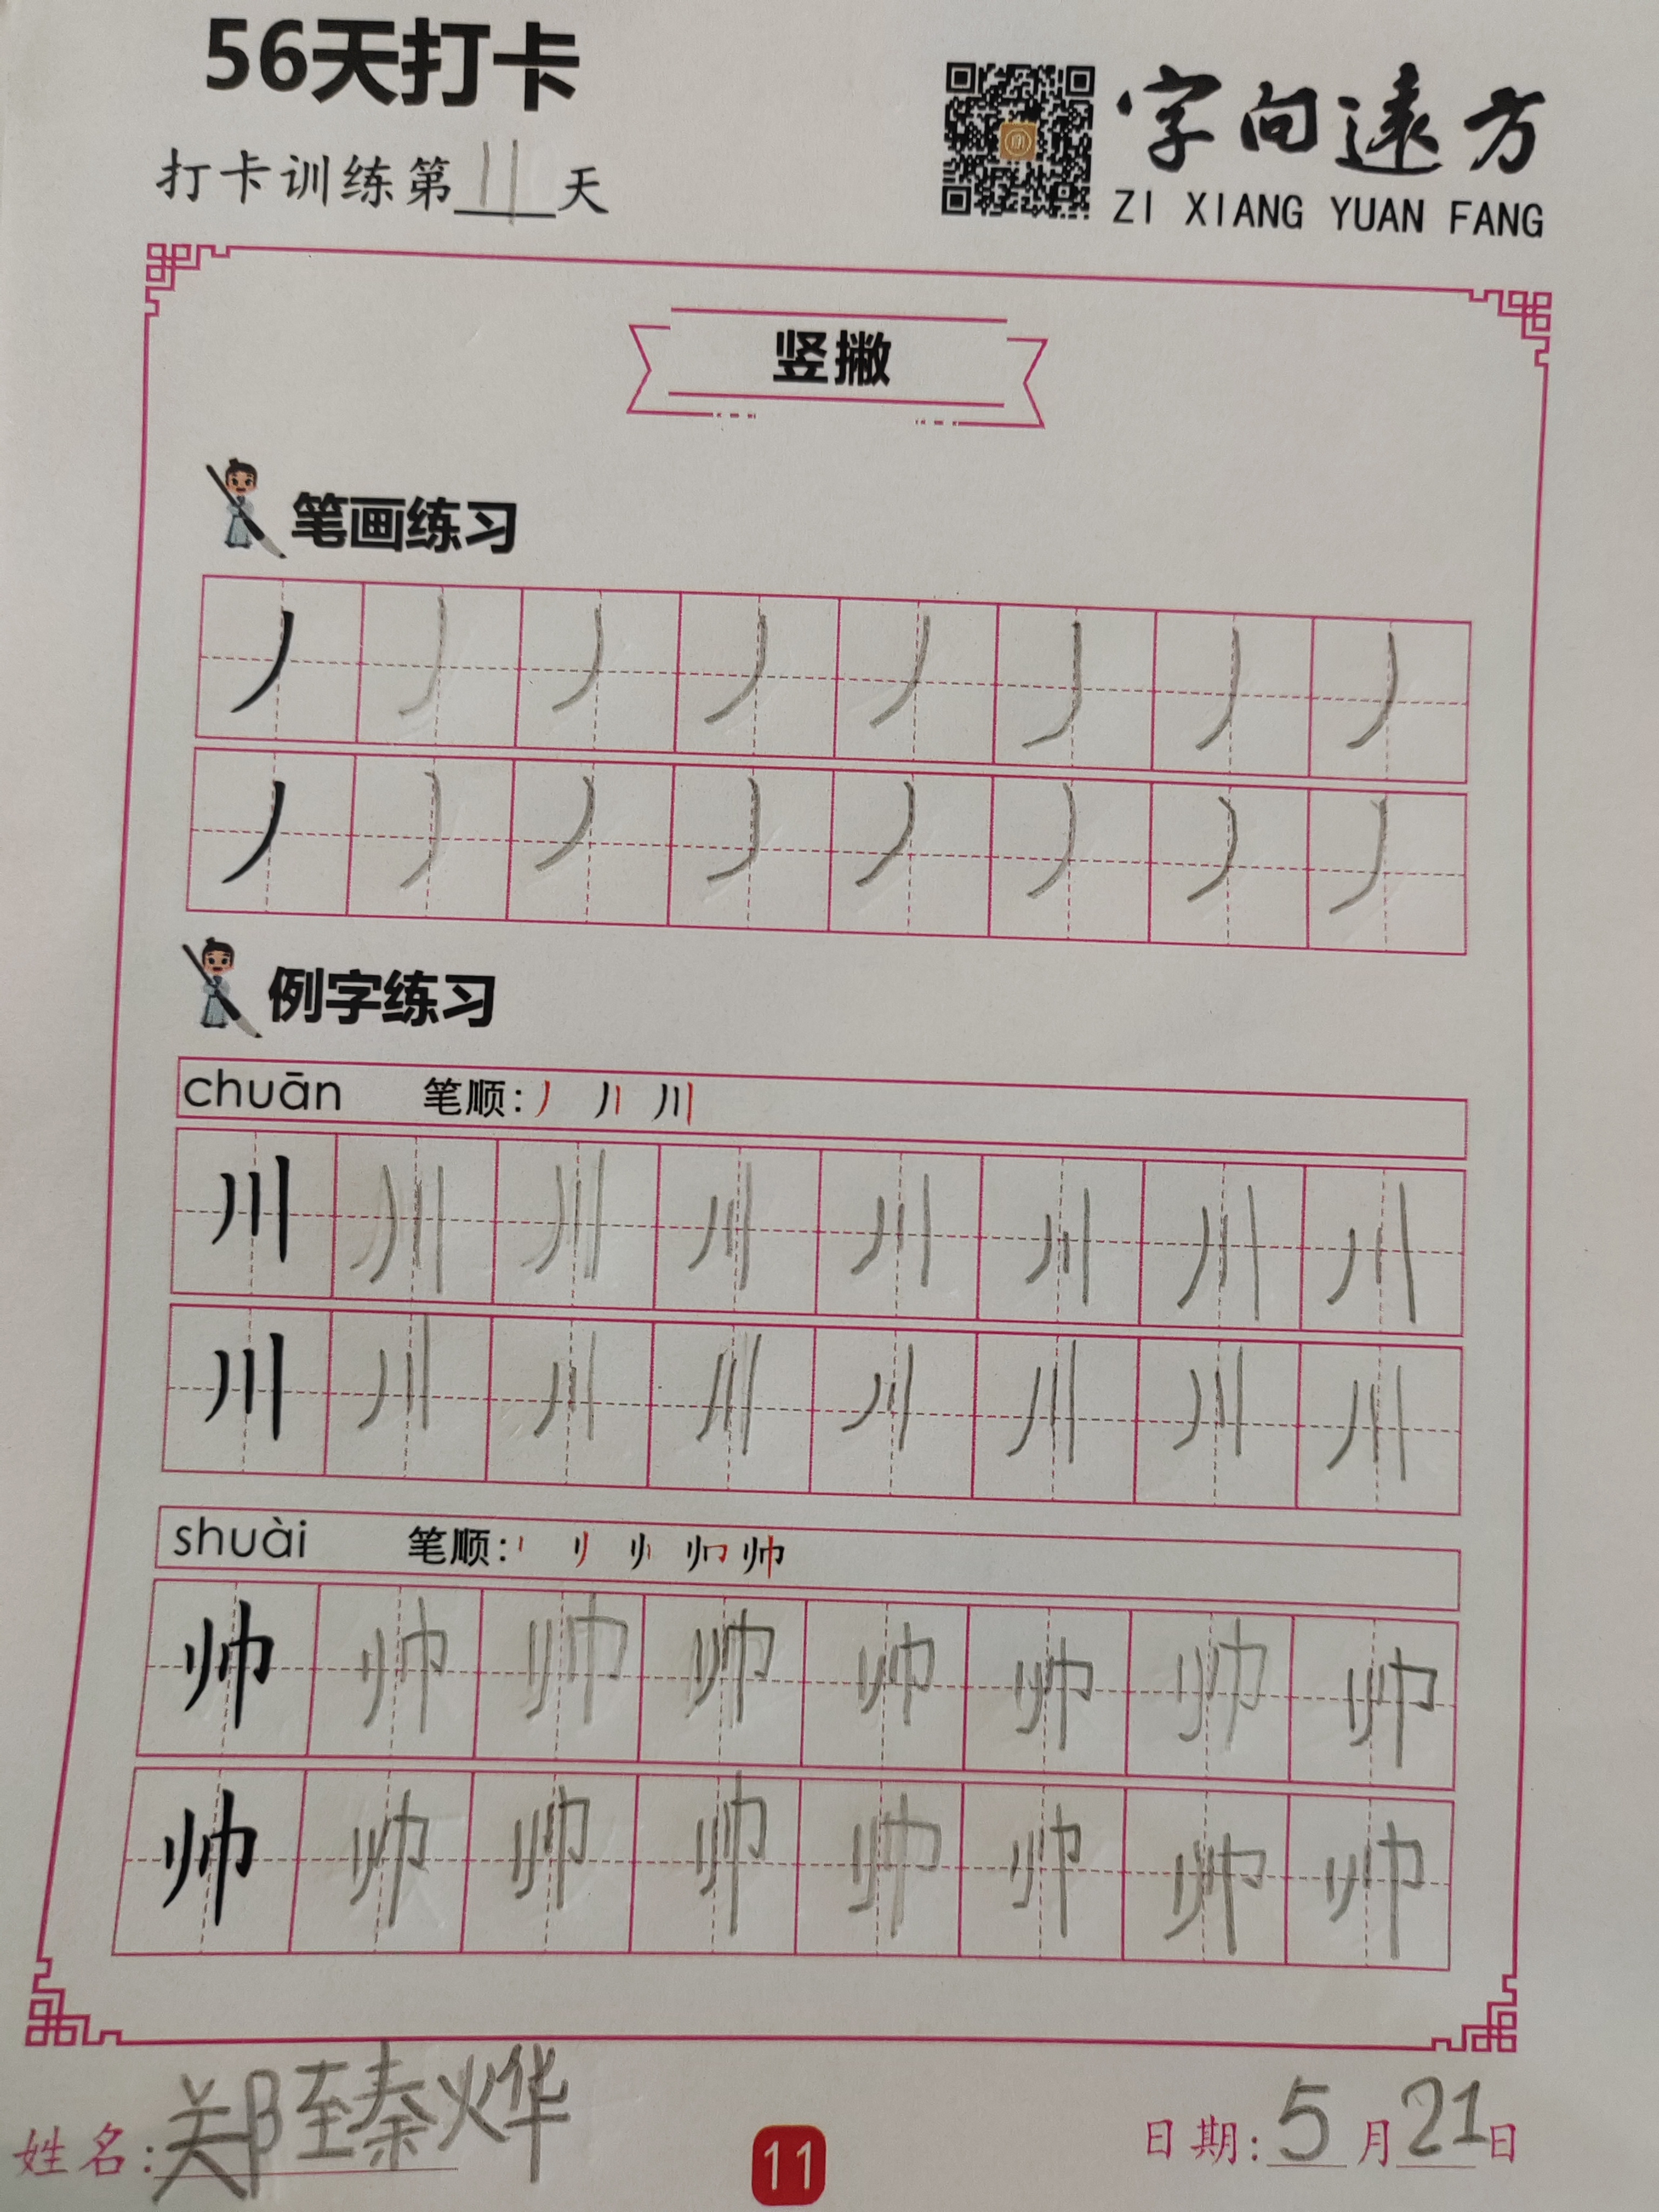 56天打卡
打卡训练第11天
字向遠方
ZI XIANG YUAN FANG
竖撇
笔画练习
丿 丿 丿 丿 丿 丿 丿 丿
丿 丿 丿 丿 丿 丿 丿 丿
例字练习
chuān 笔顺: 丿 丿丨 川
川 川 川 川 川 川 川 川
川 川 川 川 川 川 川 川
shuài 笔顺:
帅 帅 帅 帅 帅 帅 帅 帅
帅 帅 帅 帅 帅 帅 帅 帅
姓名: 郑臻烨
11
日期: 5月21日